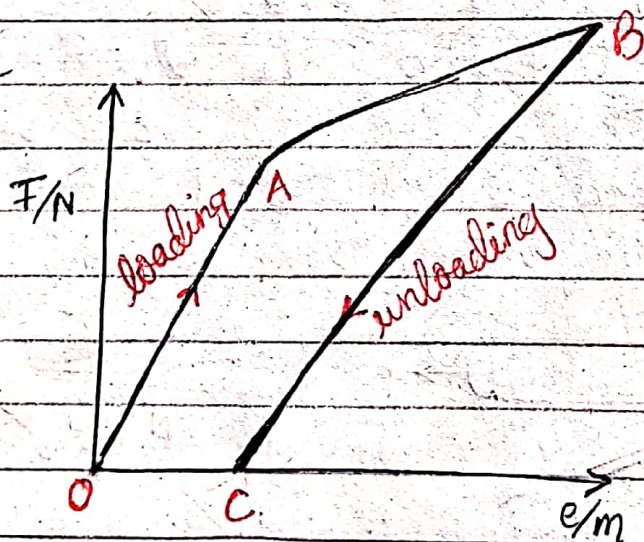 B
F/N
A
loading
unloading
O
C
e/m